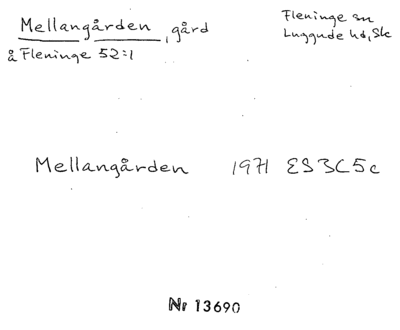 Mellangården, gård
å Fleninge 52:1
Fleninge sn
Luggude hd, Sk
Mellangården 1971 ES3C5c
Nr 13690